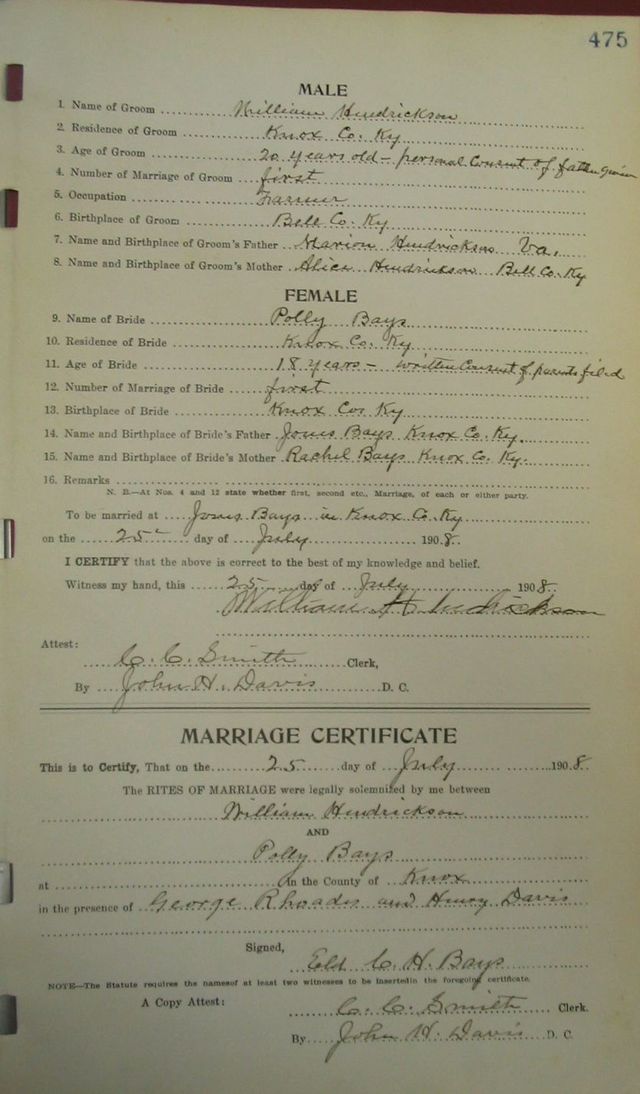 475
MALE
1. Name of Groom William Hendrickson
2. Residence of Groom Knox Co. Ky
3. Age of Groom 20 years old - personal Consent of father given
4. Number of Marriage of Groom first
5. Occupation Farmer
6. Birthplace of Groom Bell Co. Ky
7. Name and Birthplace of Groom's Father Marion Hendrickson Va.
8. Name and Birthplace of Groom's Mother Alice Hendrickson Bell Co. Ky
FEMALE
9. Name of Bride Polly Bays
10. Residence of Bride Knox Co. Ky
11. Age of Bride 18 years - written Consent of parents filed
12. Number of Marriage of Bride first
13. Birthplace of Bride Knox Co. Ky
14. Name and Birthplace of Bride's Father Bays Knox Co. Ky.
15. Name and Birthplace of Bride's Mother Rachel Bays Knox Co. Ky.
16. Remarks
N. B.—At Nos. 4 and 12 state whether first, second etc., Marriage, of each or either party.
To be married at Bays in Knox Co. Ky
on the 25 day of July 1908.
I CERTIFY that the above is correct to the best of my knowledge and belief.
Witness my hand, this 25 day of July 1908.
William Hendrickson
Attest:
C. C. Smith Clerk,
By John H. Davis D. C.
MARRIAGE CERTIFICATE
This is to Certify, That on the 25 day of July 1908.
The RITES OF MARRIAGE were legally solemnized by me between
William Hendrickson
AND
Polly Bays
at in the County of Knox
in the presence of George Rhoades and Henry Davis
Signed,
Eld C. H. Bays
NOTE—The Statute requires the namesof at least two witnesses to be insertedin the foregoing certificate.
A Copy Attest:
C. C. Smith Clerk.
By John H. Davis D. C.